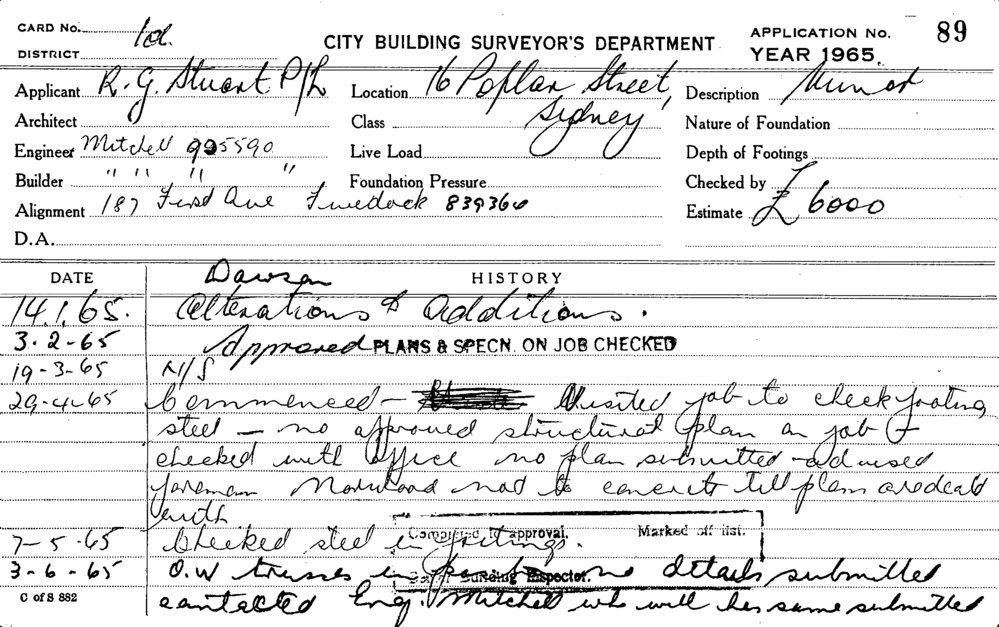 CARD No. 1d.
DISTRICT
CITY BUILDING SURVEYOR'S DEPARTMENT
APPLICATION No. 89
YEAR 1965.
Applicant R. G. Stuart P/L Location 16 Poplar Street, Sydney Description Minor
Architect Class Nature of Foundation
Engineer Mitchell 995590 Live Load Depth of Footings
Builder " " " " Foundation Pressure Checked by
Alignment 187 First Ave 839366 Estimate £6000
D.A.
DATE Dawson HISTORY
14.1.65. Alterations & Additions.
3-2-65 Approved PLANS & SPECN. ON JOB CHECKED
19-3-65 N/S
29-4-65 Commenced - Visited job to check footing
steel - no approved structural plan on job &
checked with office no plan submitted - advised
foreman not to concrete till plans are dealt
with
7-5-65 Checked steel in footings.
Compared to approval. Marked off list.
3-6-65 O.W trusses in no details submitted
Building Inspector.
C of S 882 contacted Eng. Mitchell who will have same submitted